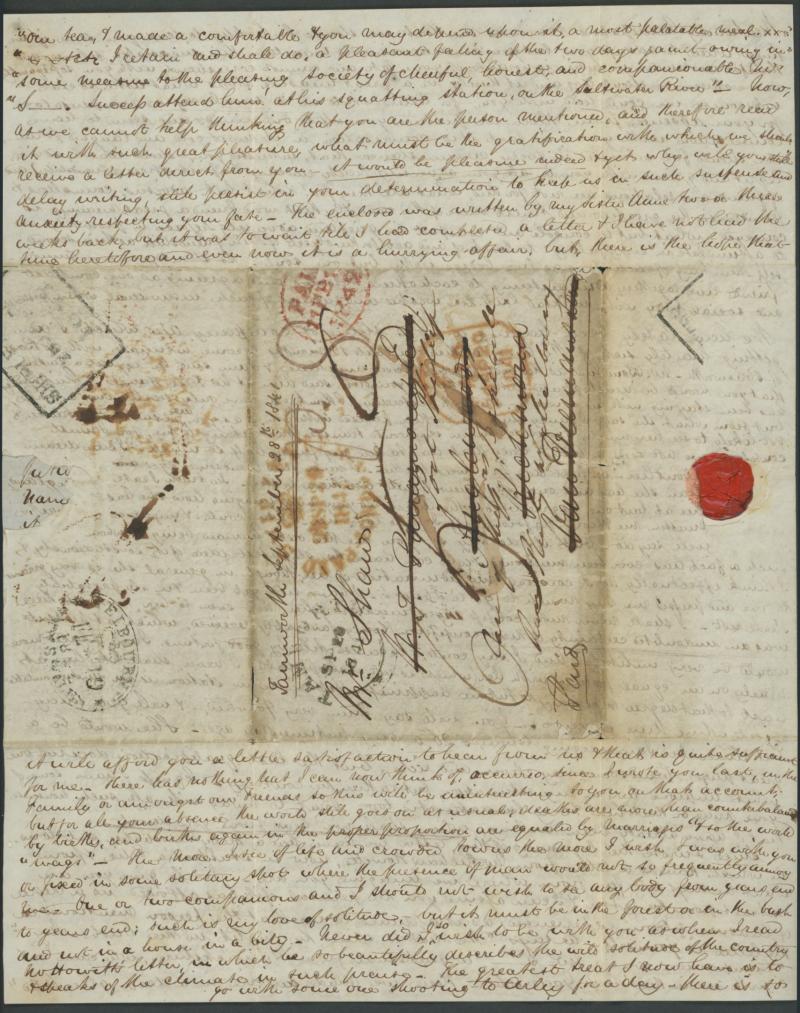 "our tea, & made a comfortable & you may depend upon it, a most palatable meal. xx"
" I retain and shall do, a pleasant feling of the two days jaunt owing in"
" some measure to the pleasing society of cheerful, honest, and companionable Mr
" S—. Success attend him, at his squatting station, on the Saltwater River" — Now,
as we cannot help thinking that you are the person mentioned, and therefore read
it with such great pleasure, what must be the gratification with which we should
receive a letter direct from you — it would be pleasure indeed & yet why will you still
delay writing, still persist in your determination to keep us in such suspense and
anxiety respecting your fate — The enclosed was written by my sister Anne two or three
weeks back, but it was to wait till I had completed a letter & I have not had the
time heretofore and even now it is a hurrying affair, but, there is the hope that
PAID
1842
SHIP
Tamworth September 28th 1841
PAID
SP 29
1841
Mr Shaw
Port Phillip
Melbourne
Paid
it will afford you a little satisfaction to hear from me & that is quite sufficient
for me — there has nothing that I can now think of, occurred, since I wrote you last, in the
family or amongst our friends so this will be uninteresting to you on that account,
but for all your absence the world still goes on as usual, deaths are more than counterbalanced
by births, and births again in the proper proportion are equaled by marriages & so the world
"wags" — the more I see of life and crowded towns the more I wish I was with you
or fixed in some solitary spot where the presence of man would not so frequently annoy
one or two companions and I should not wish to see any body from years end
to years end; such is my love of solitude, — but it must be in the forest or in the bush
and not in a house in a city — Never did I so wish to be with you as when I read
Mr Howitts letter, in which he so beautifully describes the wild solitude of the country
& speaks of the climate in such praise — The greatest treat I now have is to
go with some one shooting to Arley for a day — there is so